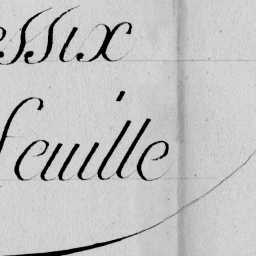 essix
feuille